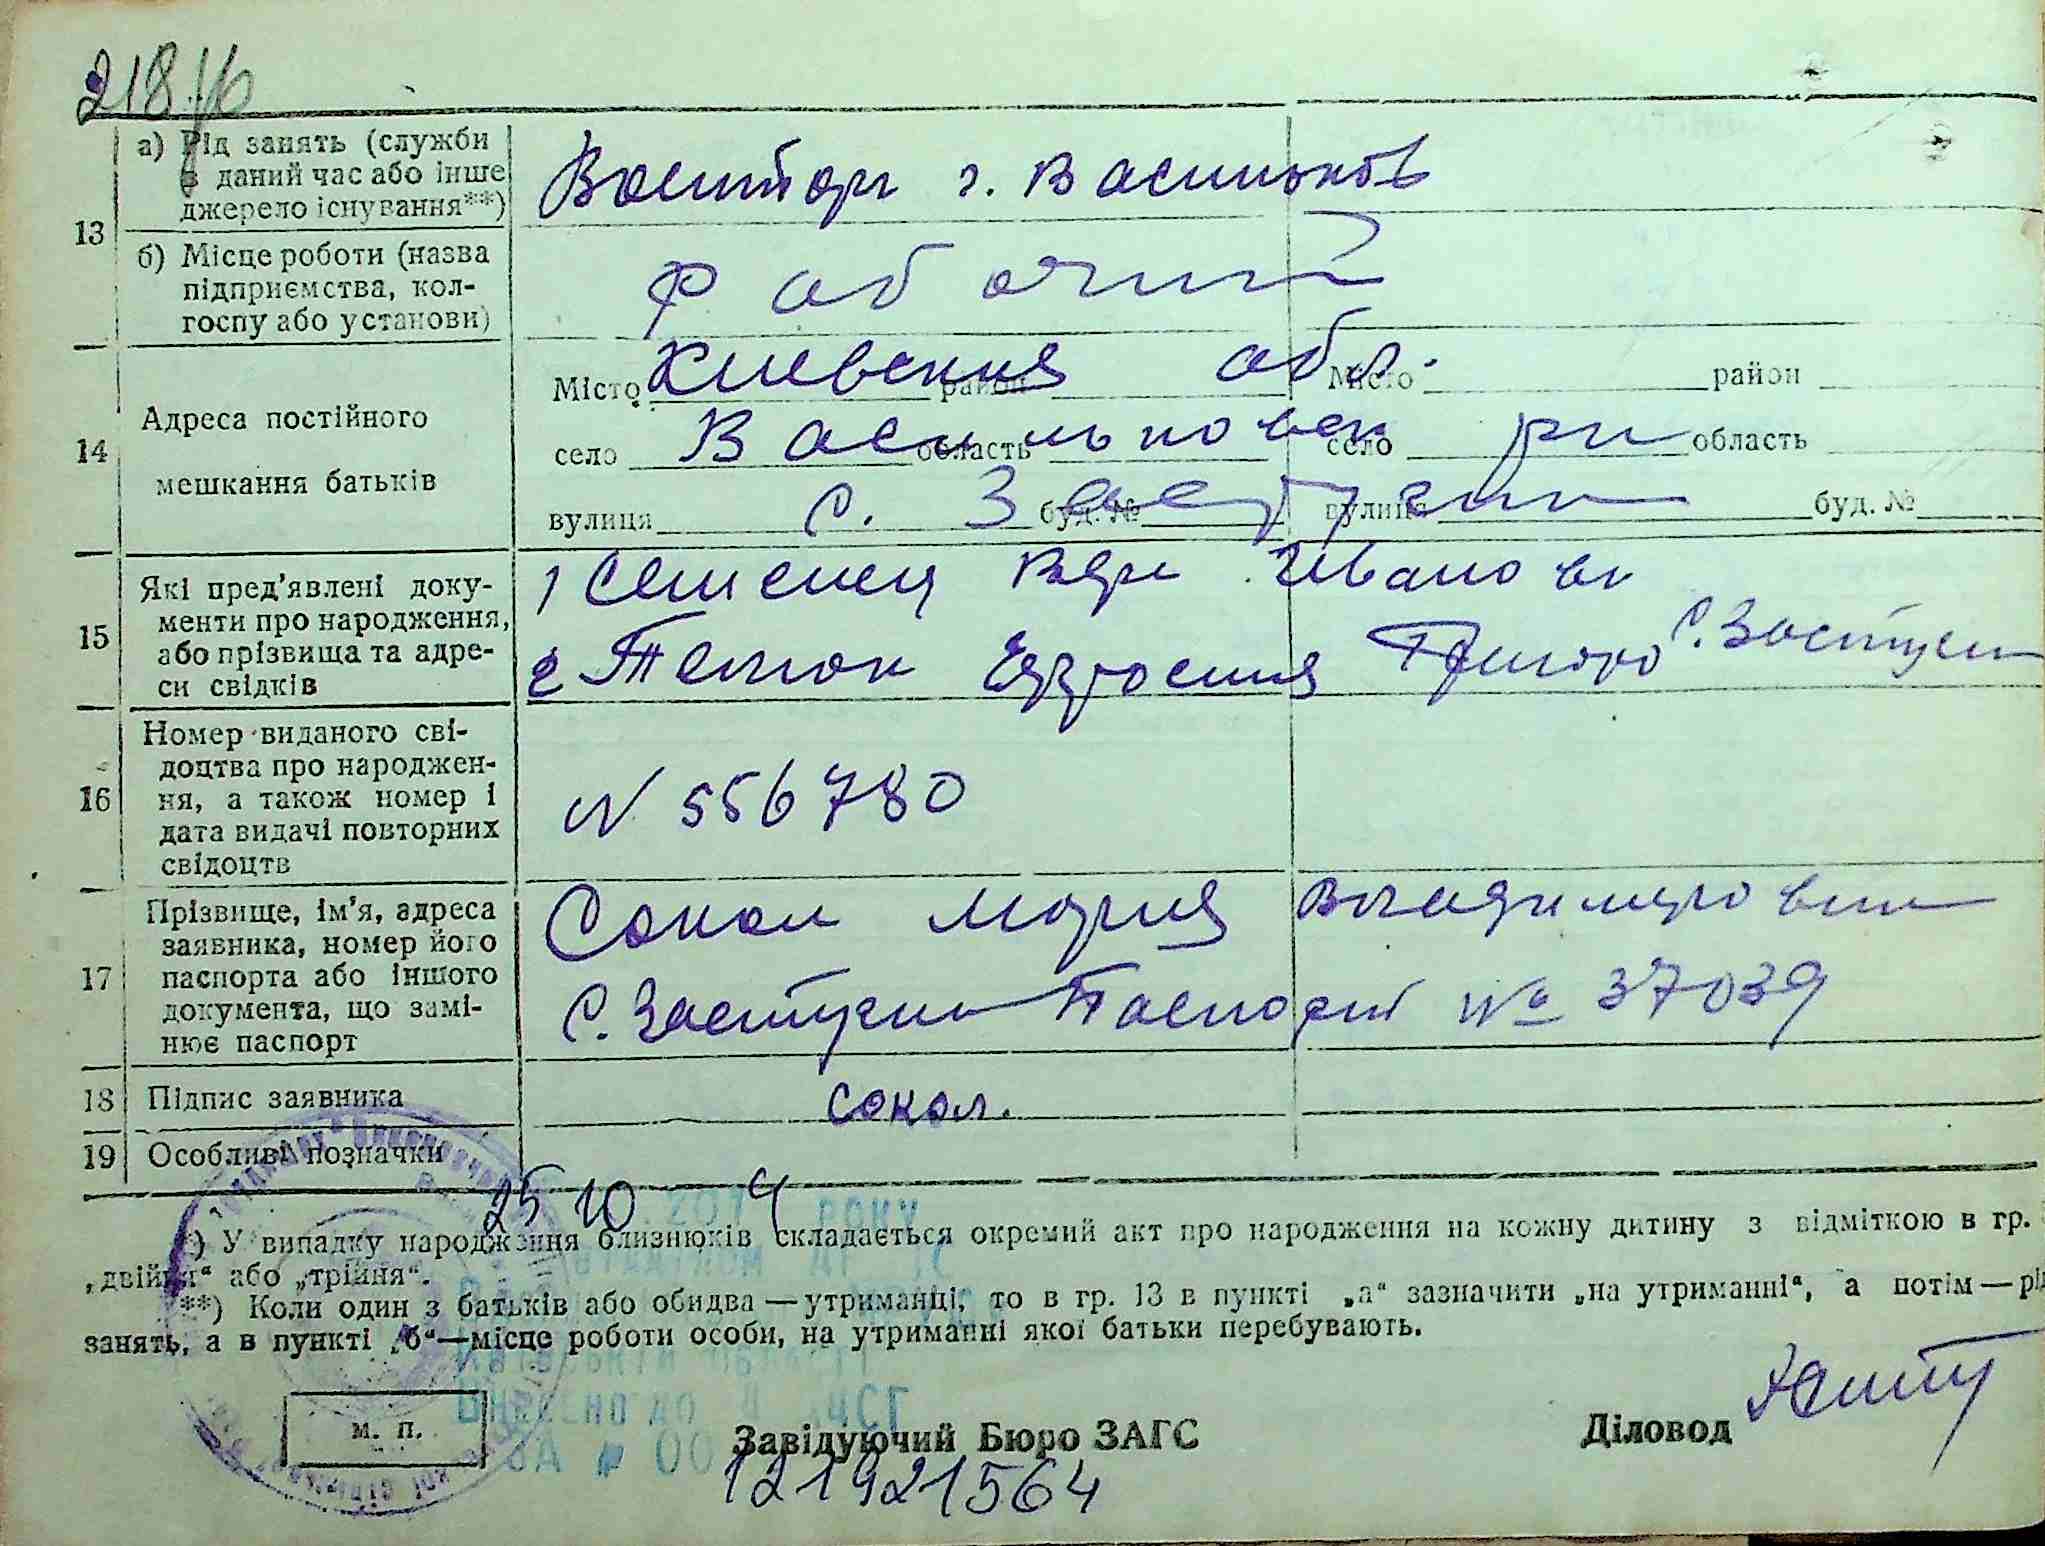 218
13
а) Рід занять (служби
в даний час або інше
джерело існування**)
Военторг г. Васильков
б) Місце роботи (назва
підприємства, кол-
госпу або установи)
Рабочий
14
Адреса постійного
мешкання батьків
Місто Киевская район обл. Місто район
село Васильковск область село р-н область
вулиця с. буд. № вулиця буд. №
15
Які пред'явлені доку-
менти про народження,
або прізвища та адре-
си свідків
1 Семенец Иванов
2 с. Заступ
16
Номер виданого сві-
доцтва про народжен-
ня, а також номер і
дата видачі повторних
свідоцтв
N 556780
17
Прізвище, ім'я, адреса
заявника, номер його
паспорта або іншого
документа, що замі-
нює паспорт
Сокол Мария Владимировн
с. Паспорт № 37039
18 Підпис заявника
сокол.
19 Особливі позначки
25 10 .2014 року
*) У випадку народження близнюків складається окремий акт про народження на кожну дитину з відміткою в гр.
„двійня“ або „трійня“.
**) Коли один з батьків або обидва — утриманці, то в гр. 13 в пункті „а“ зазначити „на утриманні“, а потім — рід
занять, а в пункті „б“ — місце роботи особи, на утриманні якої батьки перебувають.
Внесено до
м. п.
ЗА № 00
Завідуючий Бюро ЗАГС
Діловод
121921564